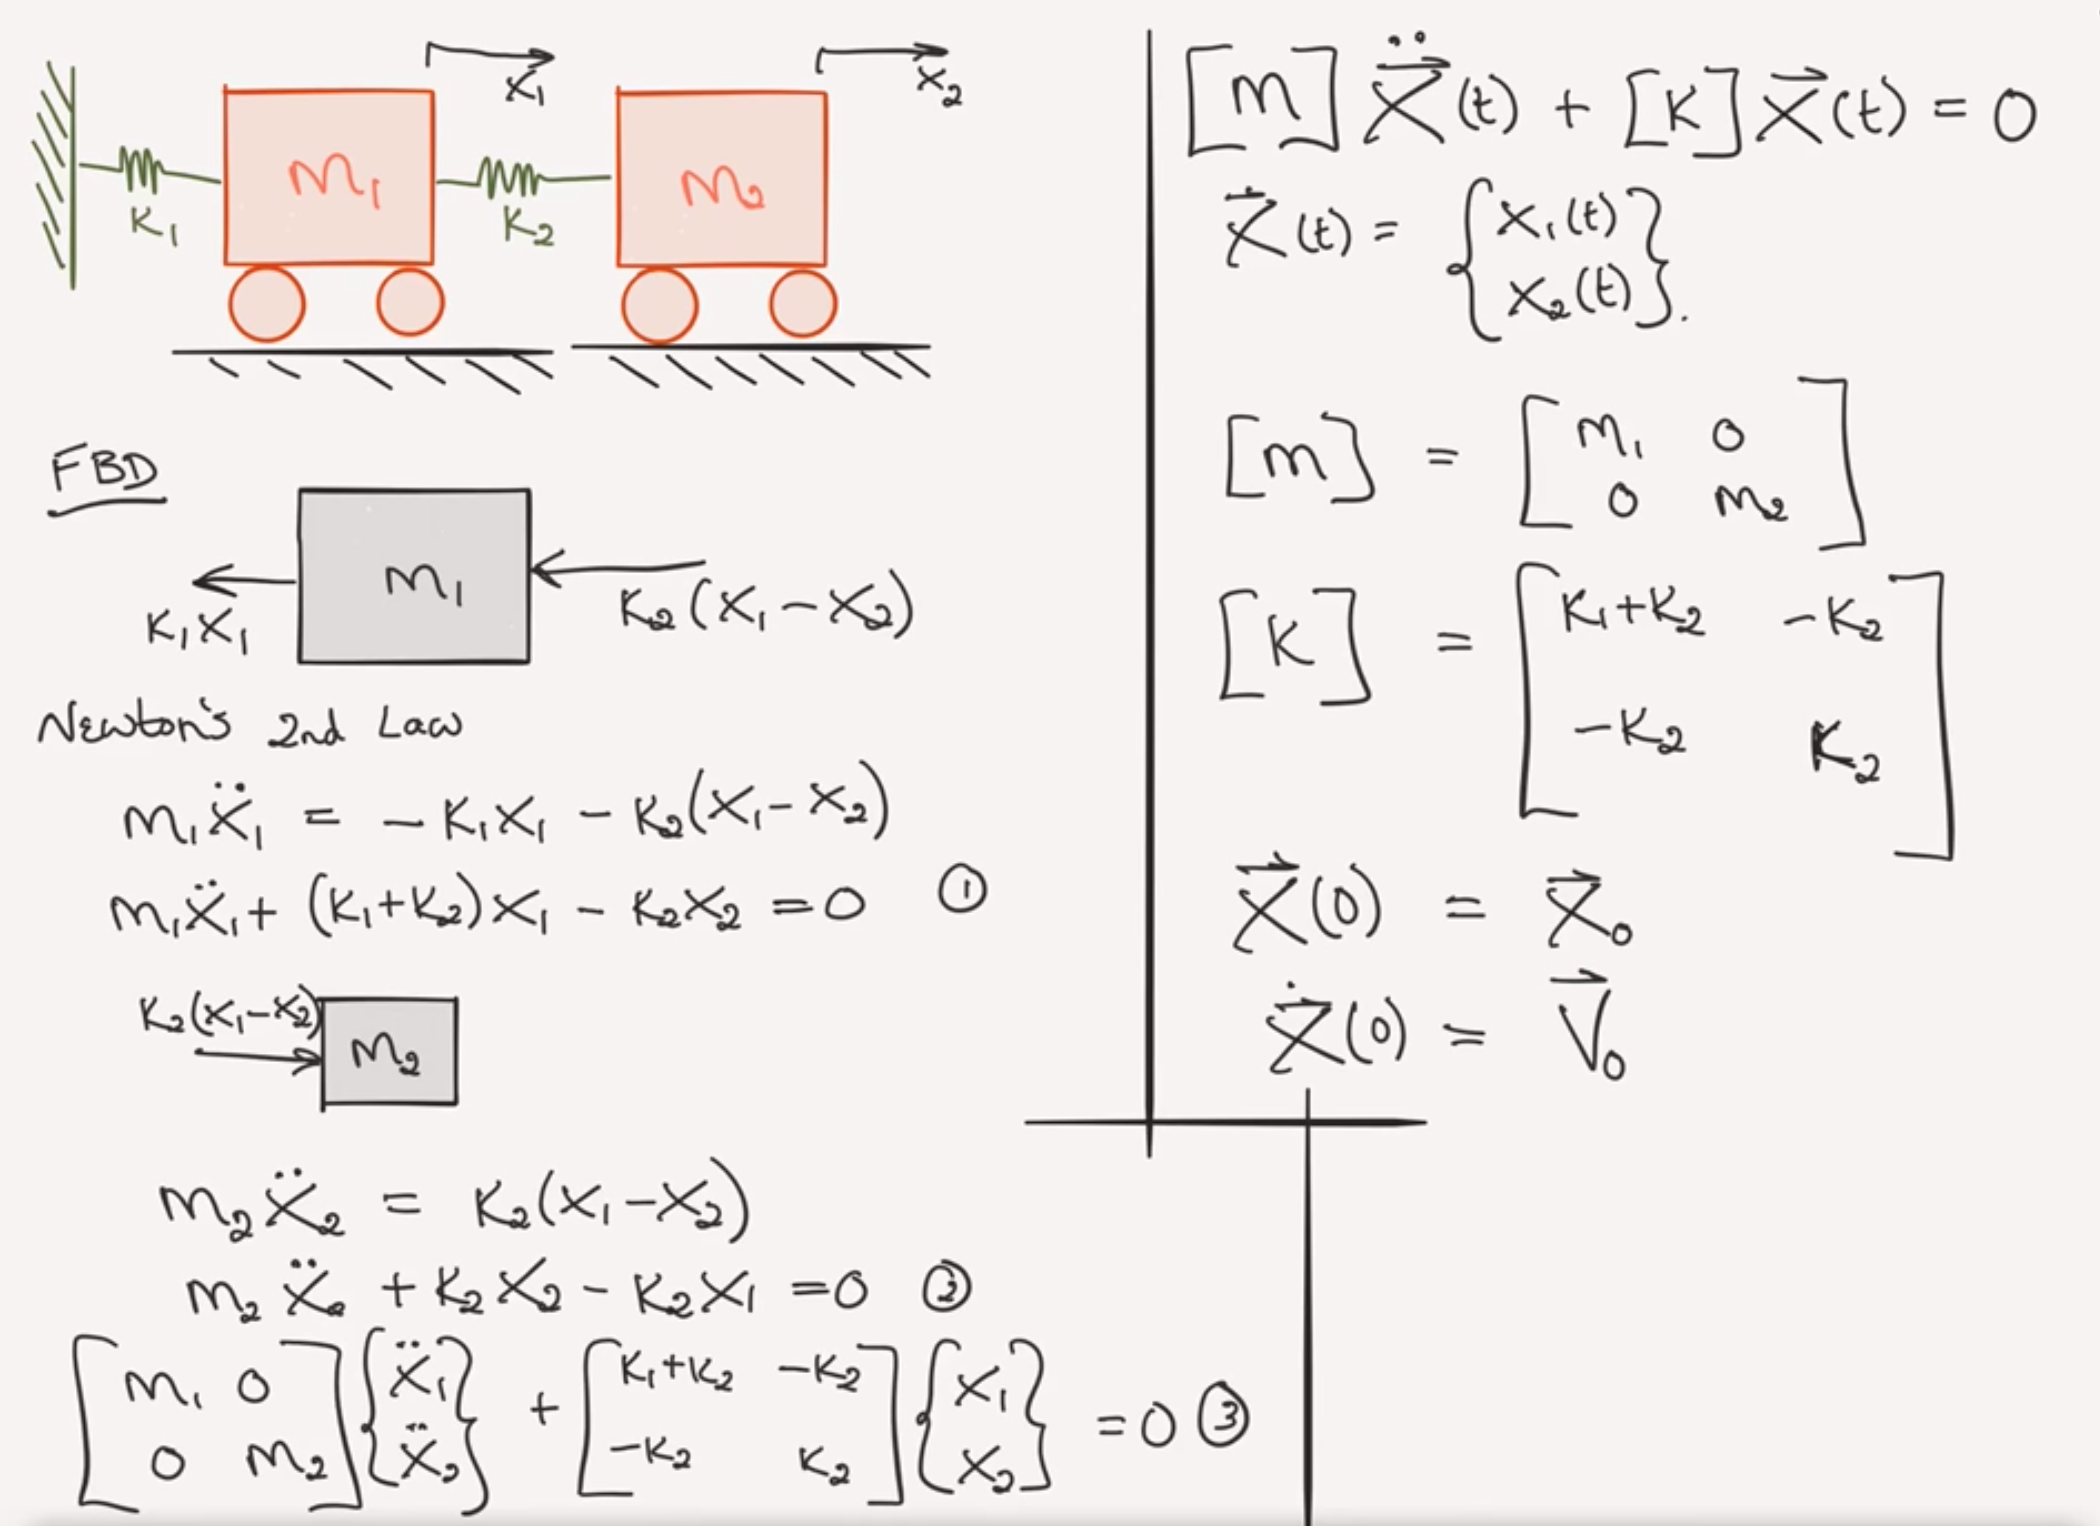 X₁ X₂
M₁ M₂
K₁ K₂
FBD
M₁
K₁X₁ K₂(X₁-X₂)
Newton's 2nd Law
m₁Ẍ₁ = -K₁X₁ - K₂(X₁-X₂)
m₁Ẍ₁ + (K₁+K₂)X₁ - K₂X₂ = 0 ①
K₂(X₁-X₂)
M₂
m₂Ẍ₂ = K₂(X₁-X₂)
m₂Ẍ₂ + K₂X₂ - K₂X₁ = 0 ②
[m₁ 0; 0 m₂]{Ẍ₁; Ẍ₂} + [K₁+K₂ -K₂; -K₂ K₂]{X₁; X₂} = 0 ③
[m] X⃗̈(t) + [K] X⃗(t) = 0
X⃗(t) = {X₁(t); X₂(t)}.
[m] = [m₁ 0; 0 m₂]
[K] = [K₁+K₂ -K₂; -K₂ K₂]
X⃗(0) = X⃗₀
X⃗̇(0) = V⃗₀